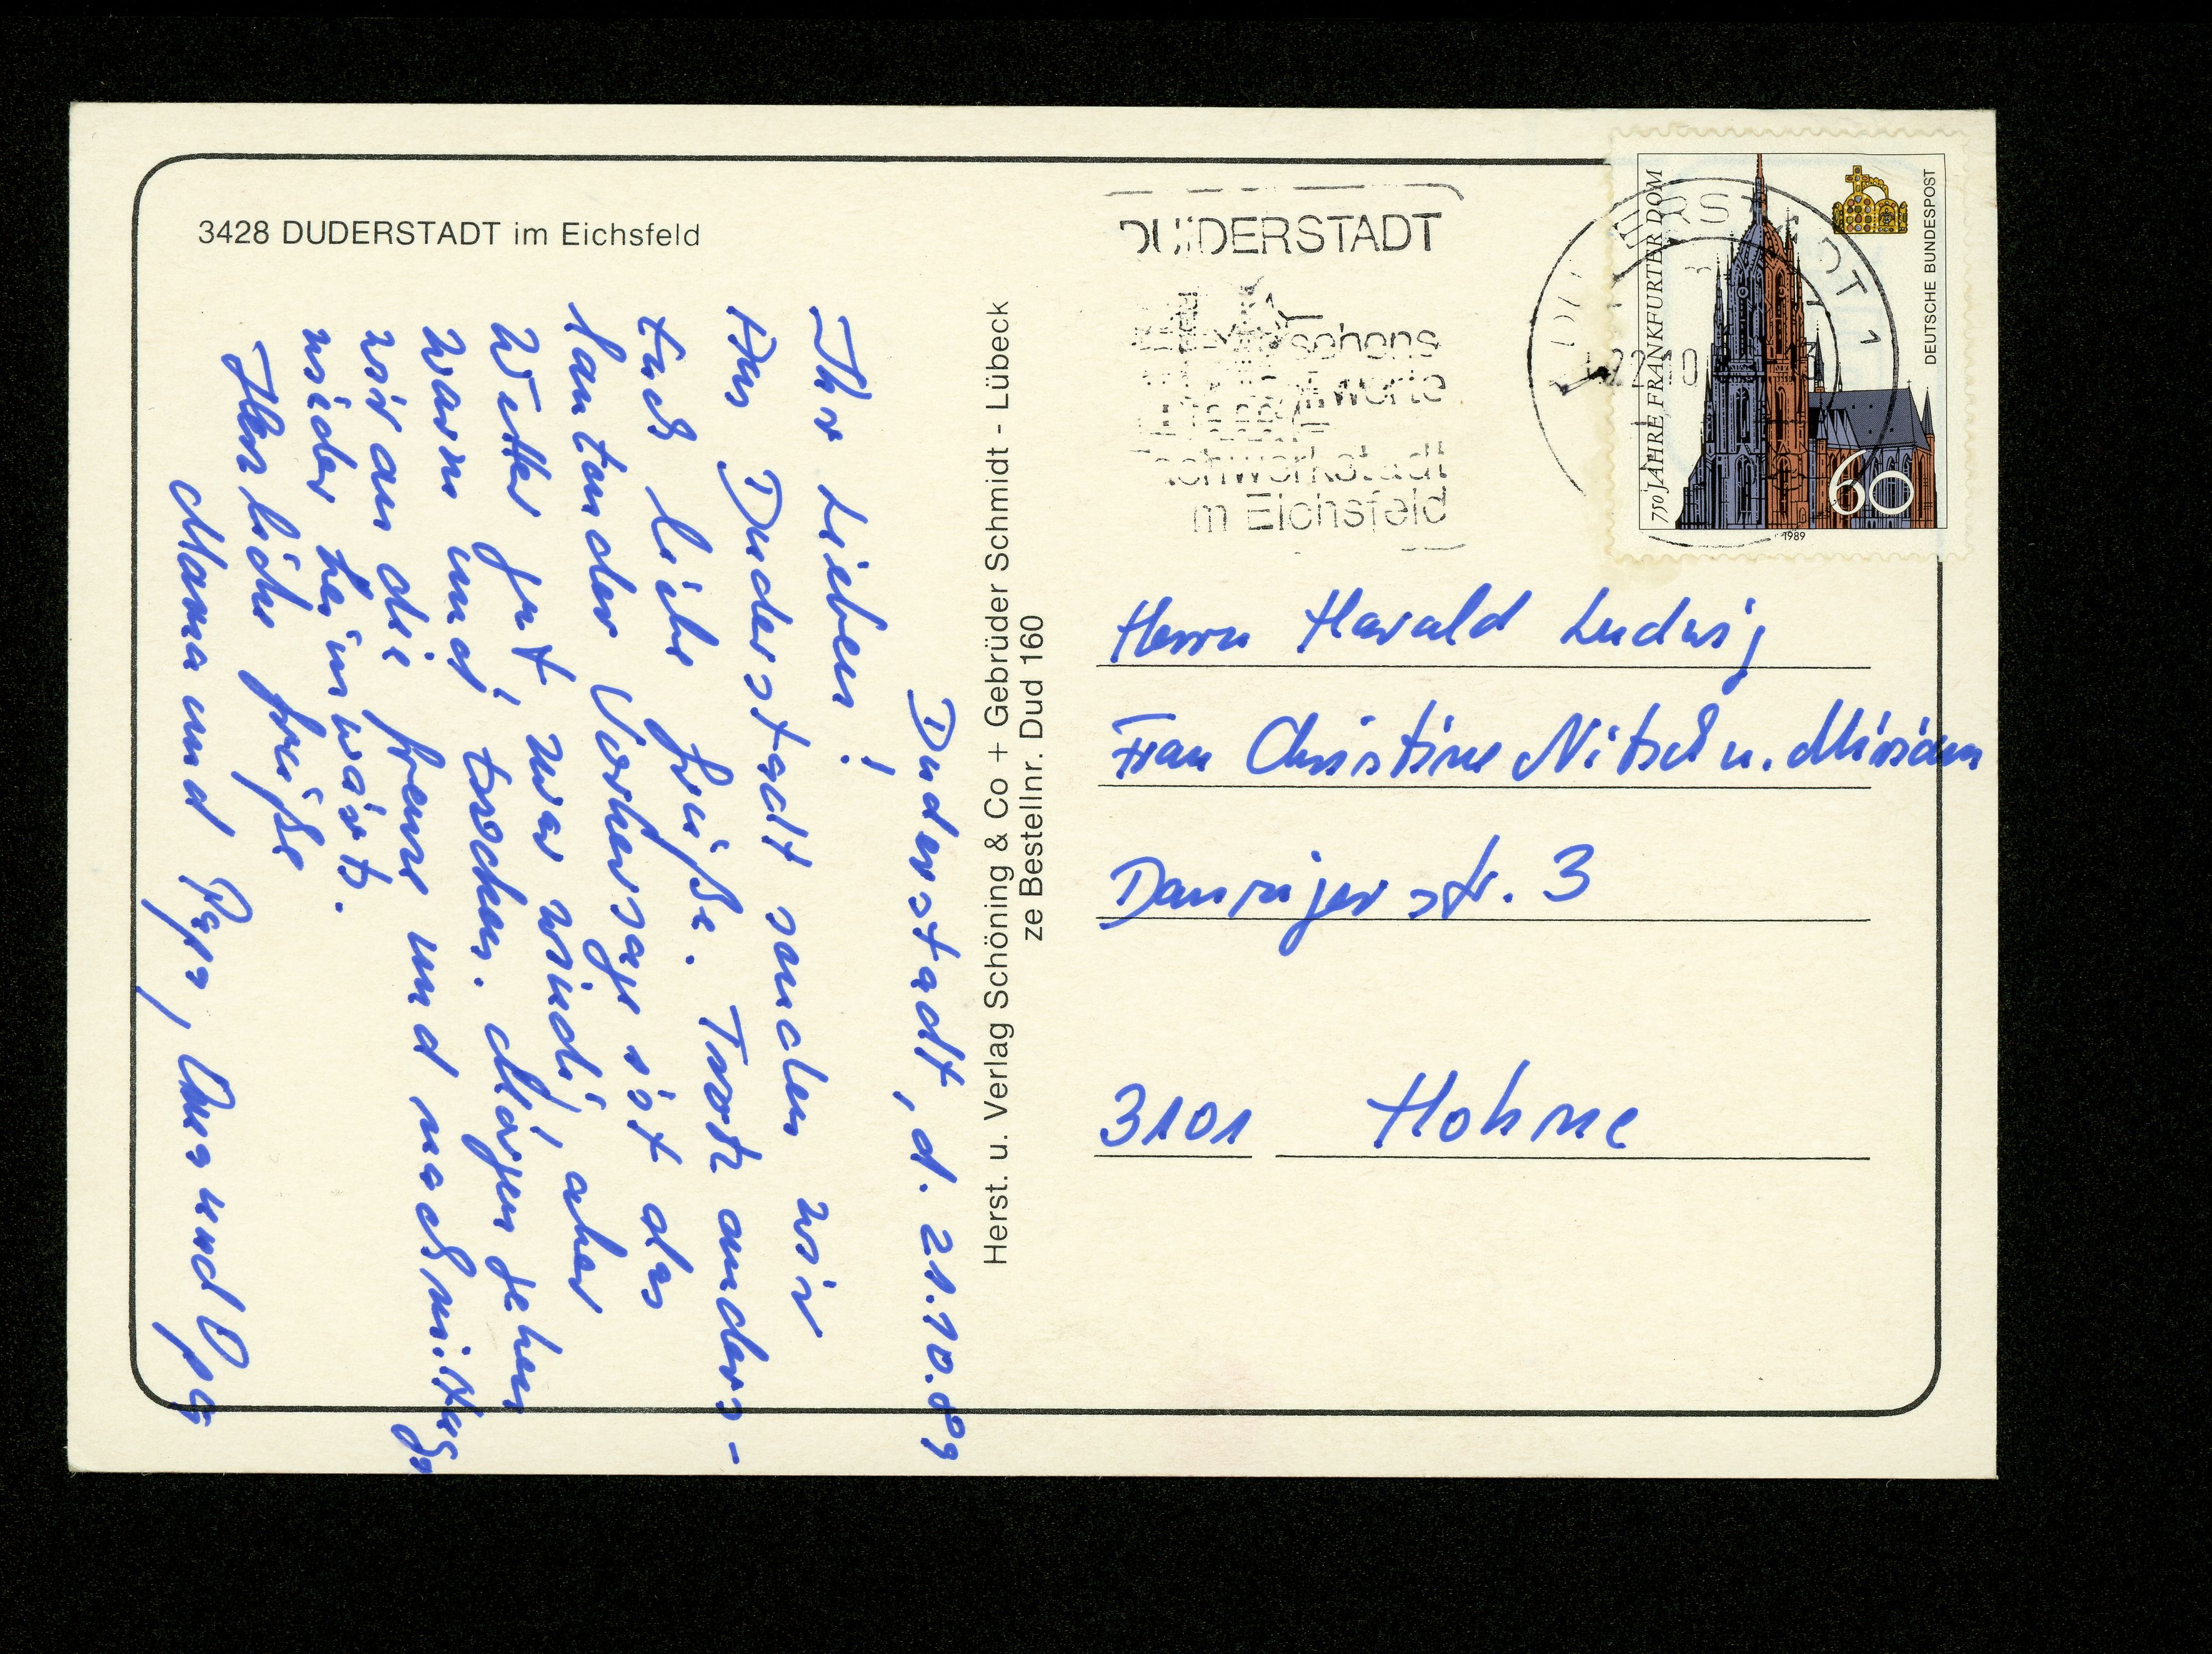 3428 DUDERSTADT im Eichsfeld
Duderstadt, d. 21.10.89
Ihr Lieben!
Aus Duderstadt senden wir
Euch liebe Grüße. Trotz anders-
lautender Vorhersage ist das
Wetter gut, zwar windig, aber
warm und trocken. Morgen gehen
wir an die Grenze und nachmittags
wieder heimwärts.
Herzliche Grüße
Mama und Papa, Oma und Opa
Herst. u. Verlag Schöning & Co + Gebrüder Schmidt - Lübeck
ze Bestellnr. Dud 160
DUDERSTADT
sehens
werte
Fachwerkstadt
im Eichsfeld
DUDERSTADT 1
22.10
750 JAHRE FRANKFURTER DOM
DEUTSCHE BUNDESPOST
60
1989
Herrn Harald Ludwig
Frau Christine Nitsch u. Miriam
Danziger Str. 3
3101 Hohne